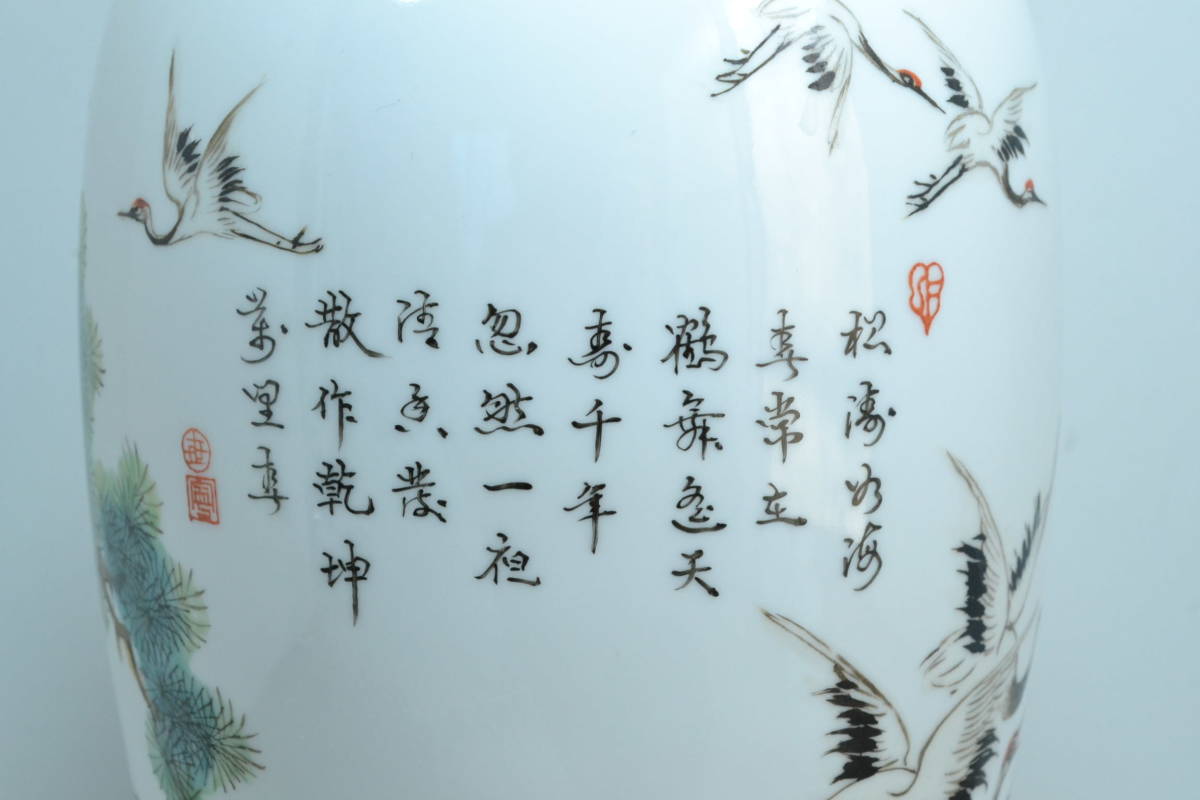 松涛如海
春常在
鶴舞遙天
寿千年
忽然一夜
清香發
散作乾坤
萬里春